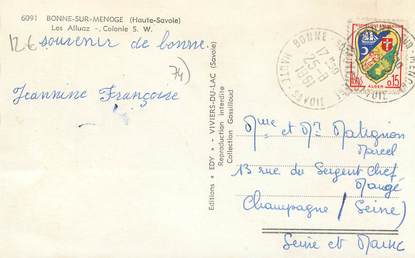 6091 BONNE-SUR-MENOGE (Haute-Savoie)
Les Alluaz -, Colonie S. W.
126
souvenir de bonne.
74)
Jeannine Françoise
Editions " EDY " - VIVIERS-DU-LAC (Savoie)
Reproduction interdite
Collection Gossilloud
BONNE
25-8
1961
HTE SAVOIE
ALGER
0,15
Mme et Mr Matignon
Marcel
13 rue du Sergent Chef
Maugé
Champagne / Seine /
Seine et Marne